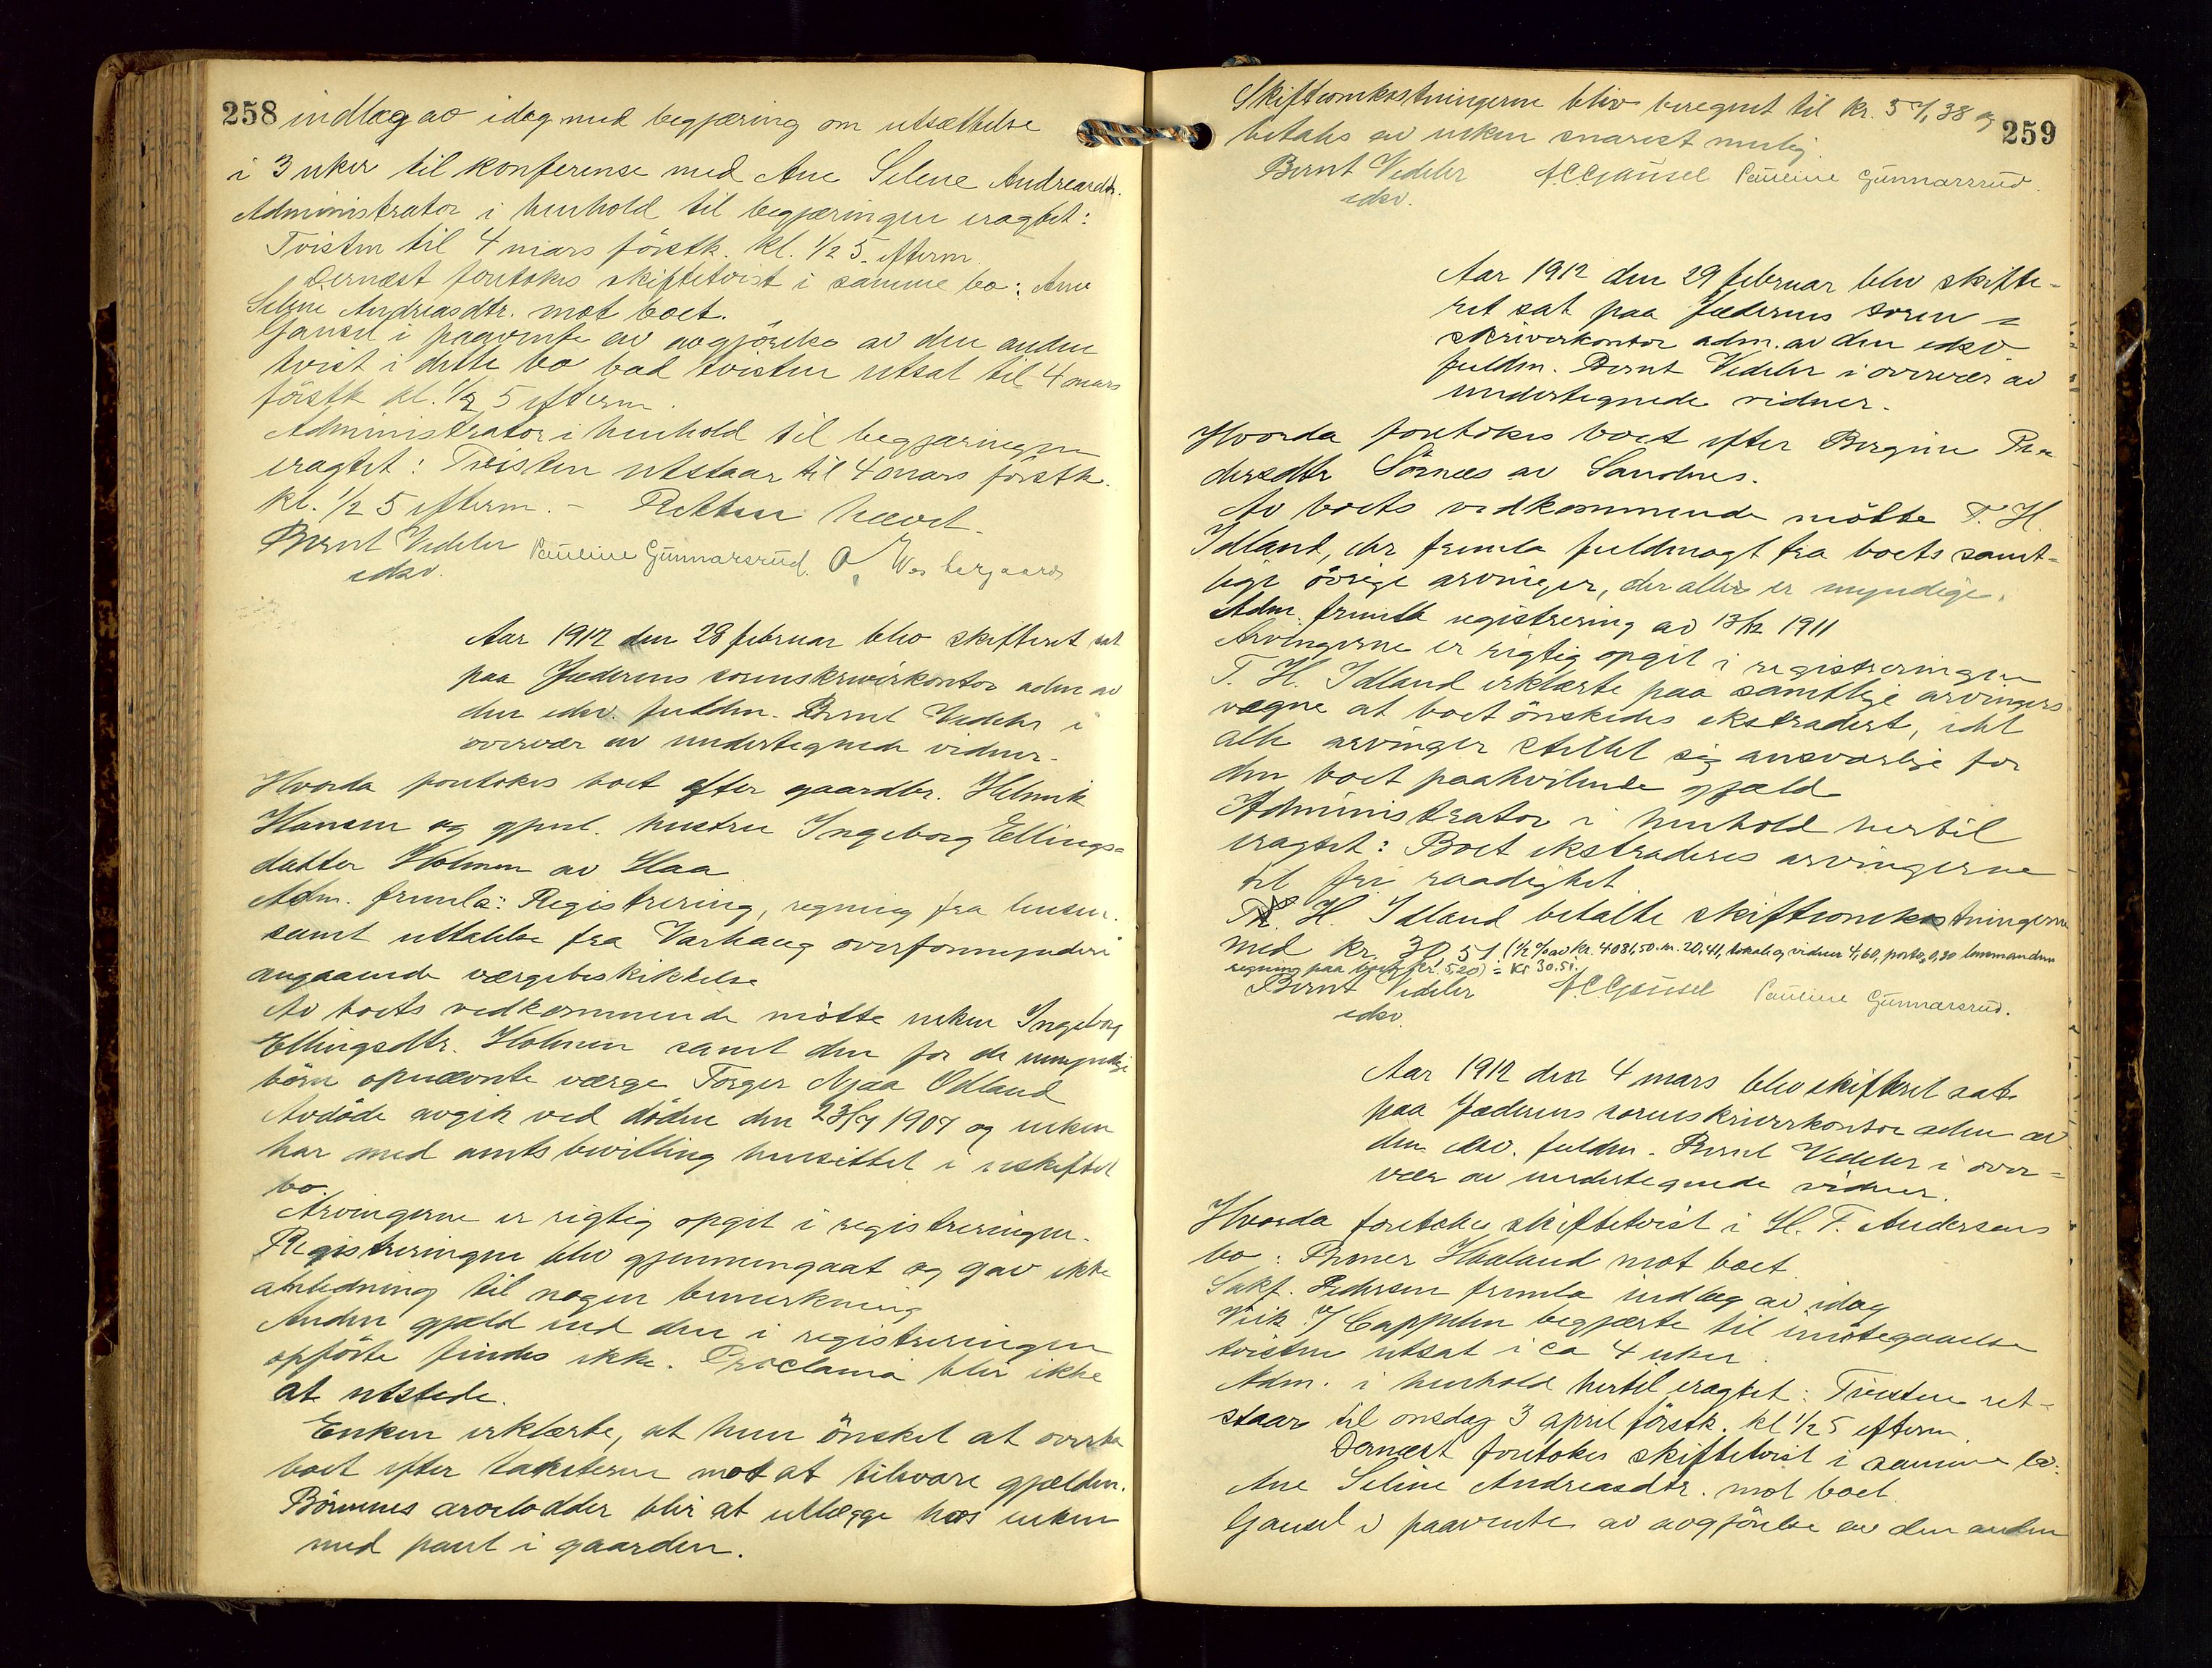 258
indlæg av idag med begjæring om utsættelse
i 3 uker til konferense med Ane Selene Andreasdtr.
Administrator i henhold til begjæringen eragtet:
Tvisten til 4 mars förstk. kl. 1/2 5. efterm.
Dernæst foretokes skiftetvist i samme bo: Ane
Selene Andreasdtr. mot boet.
Gausel i paavente av avgjörelse av den anden
tvist i dette bo bad tvisten utsat til 4 mars
förstk kl. 1/2 5 efterm.
Administrator i henhold til begjæringen
eragtet: Tvisten utstaar til 4 mars förstk.
kl. 1/2 5 efterm. - Retten hævet.
Bernt Vedeler Pauline Gunnarsrud.
edsv.
Aar 1912 den 28 februar blev skifteret sat
paa Jæderens sorenskriverkontor adm av
den edsv. fuldm. Bernt Vedeler i
overvær av undertegnede vidner.
Hvorda foretokes boet efter gaardbr. Helmik
Hansen og gjenl. hustru Ingeborg Ellings=
datter Holmen av Haa
Adm. fremla: Registrering, regning fra lensm.
samt uttalelse fra Varhaug overformynderi
angaaende værgebeskikkelse
Av boets vedkommende mötte enken Ingeborg
Ellingsdtr. Holmen samt den for de umyndige
börn opnævnte værge Torger Njaa Odland
Avdöde avgik ved döden den 23/7 1907 og enken
har med amtsbevilling hensittet i uskiftet
bo.
Arvingerne er rigtig opgit i registreringen.
Registreringen blev gjennemgaat og gav ikke
anledning til nogen bemerkning
Anden gjæld end den i registreringen
opförte findes ikke. Proclama blir ikke
at utstede.
Enken erklærte, at hun önsket at overta
boet efter taksterne mot at tilsvare gjælden.
Börnenes arvelodder blir at utlægge hos enken
med pant i gaarden.
259
Skifteomkostningerne blev beregnet til kr. 57,38 og
betales av enken snarest mulig
Bernt Vedeler A.C. Gausel Pauline Gunnarsrud.
edsv.
Aar 1912 den 29 februar blev skifte-
ret sat paa Jæderens soren =
skriverkontor adm. av den edsv.
fuldm. Bernt Vedeler i overvær av
undertegnede vidner.
Hvorda foretokes boet efter Bergine Pe=
dersdtr Sörnæs av Sandnes.
Av boets vedkommende mötte T. H.
Idland, der fremla fuldmagt fra boets samt-
lige övrige arvinger, der alle er myndige.
Adm. fremla registrering av 13/12 1911
Arvingerne er rigtig opgit i registreringen
T. H. Idland erklærte paa samtlige arvingers
vegne at boet önskedes ekstradert, idet
alle arvinger stillet sig ansvarlige for
den boet paahvilende gjæld
Administrator i henhold hertil
eragtet: Boet ekstraderes arvingerne
til fri raadighet
T. H. Idland betalte skifteomkostningerne
med kr. 30,51 (1/2 % av kr. 4081,50 m. 20,41, lokale og vidner 4,60, porto, 0,30 lensmandens
regning paa kr. 5,20) = kr 30.51.
Bernt Vedeler A.C. Gausel Pauline Gunnarsrud.
edsv.
Aar 1912 den 4 mars blev skifteret sat
paa Jæderens sorenskriverkontor adm av
den edsv. fuldm. Bernt Vedeler i over=
vær av undertegnede vidner.
Hvorda foretokes skiftetvist i H. T. Andersens
bo: Haaland mot boet
Sakf. Pedersen fremla indlæg av idag
Cappelen begjærte til imötegaaelse
tvisten utsat i ca 4 uker.
Adm. i henhold hertil eragtet: Tvisten ut-
staar til onsdag 3 april förstk. kl 1/2 5 efterm.
Dernæst foretokes skiftetvist i samme bo:
Ane Seline Andreasdtr. mot boet
Gausel i paavente av avgjörelse av den anden